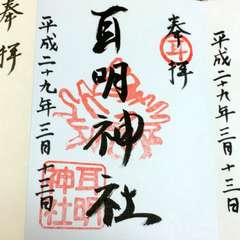 平成二十九年三月十三日
奉拝
耳明神社
耳明
神社
平成二十九年三月十三日
奉拝